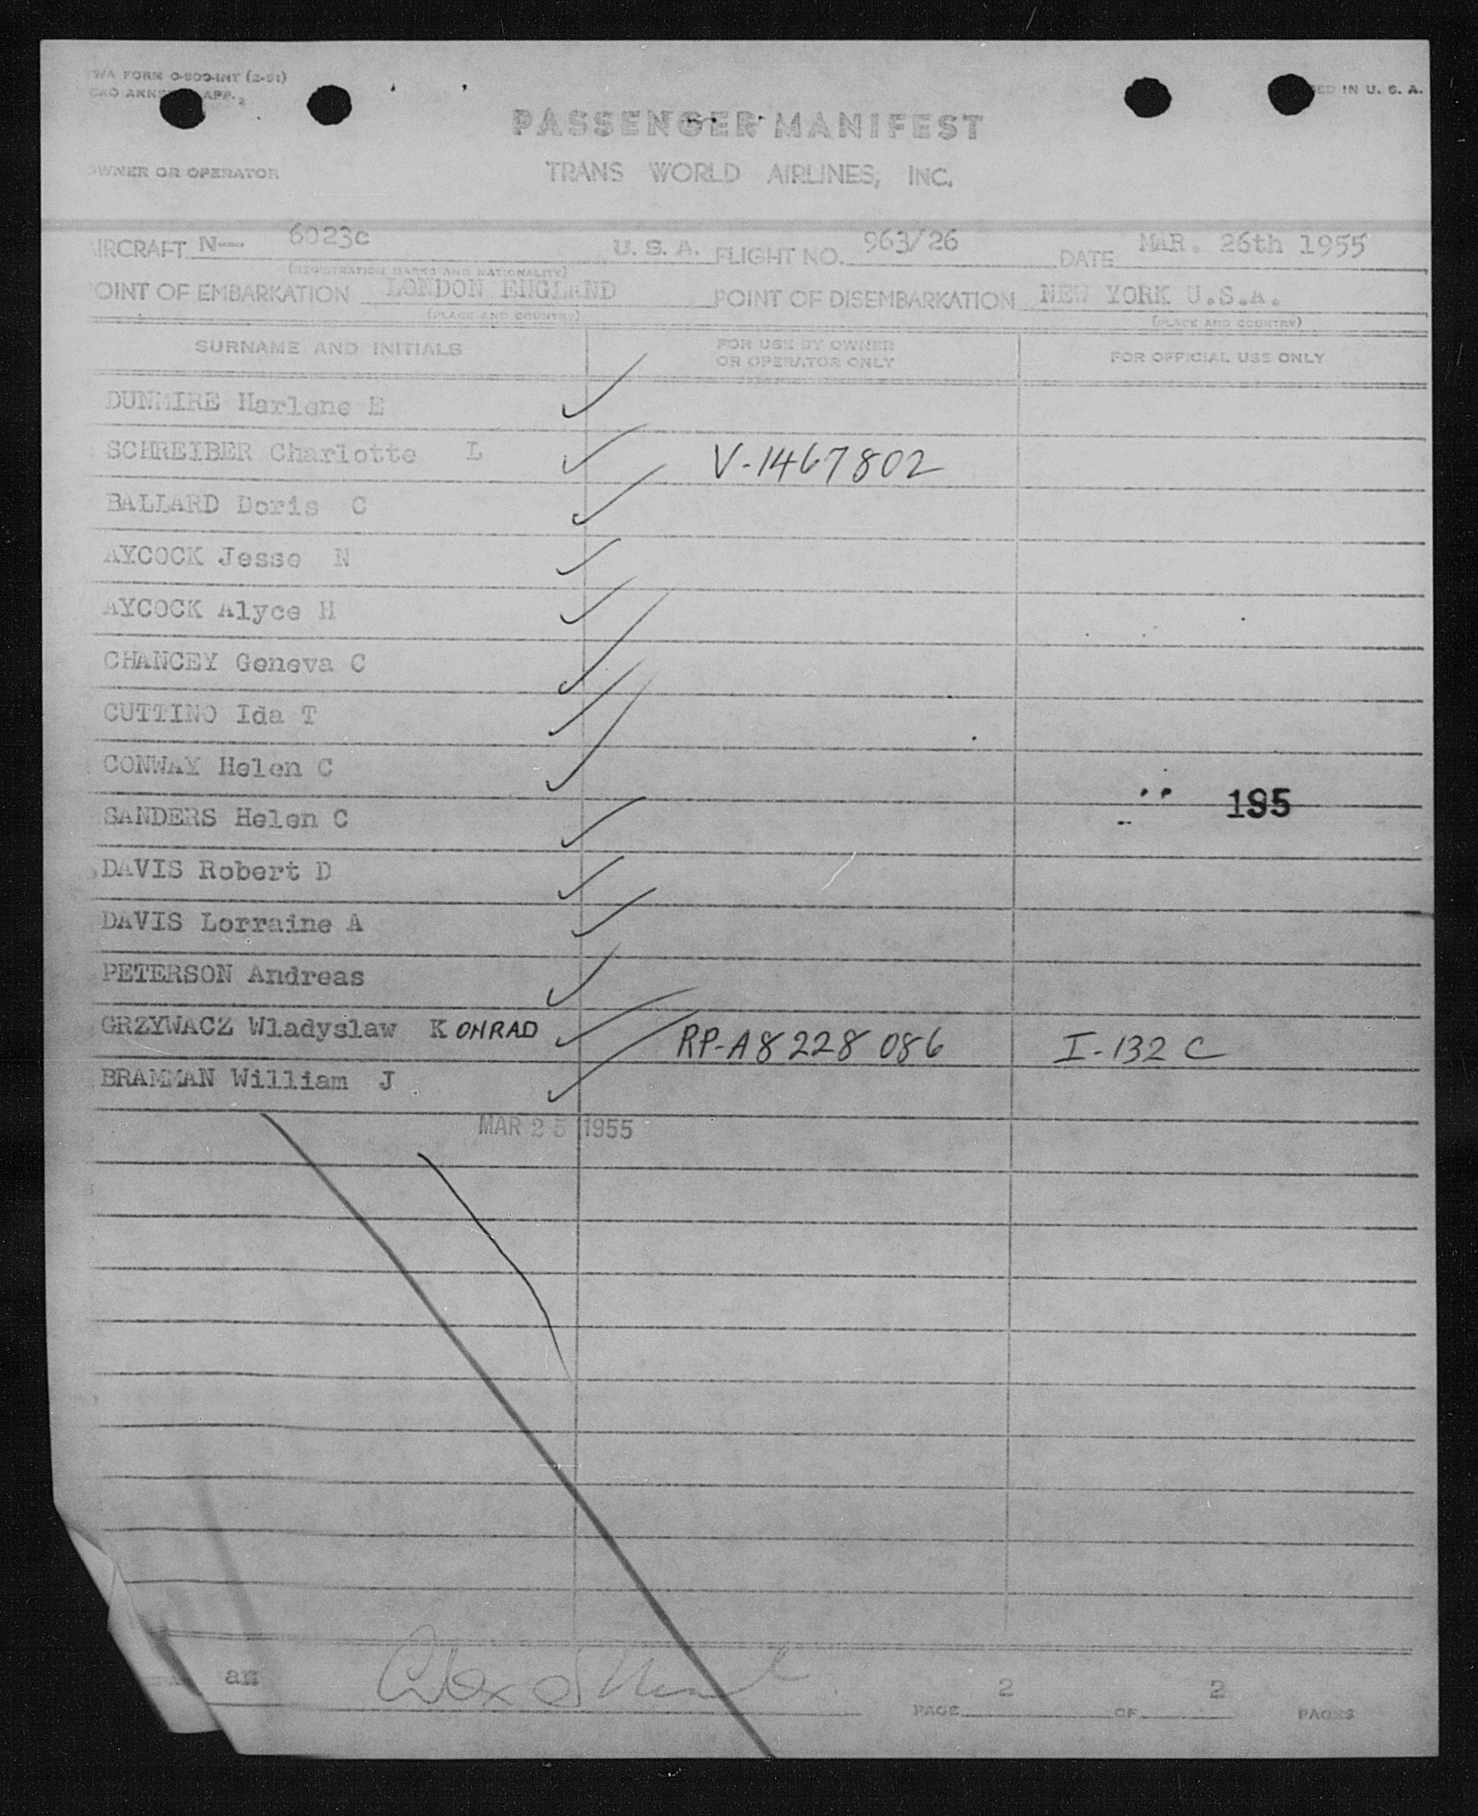 TWA FORM O-800-INT (2-51)
ICAO ANNEX 9 APP. 2
PRINTED IN U. S. A.
PASSENGER MANIFEST
OWNER OR OPERATOR TRANS WORLD AIRLINES, INC.
AIRCRAFT N— 6023c U. S. A. FLIGHT NO. 963/26 DATE MAR. 26th 1955
(REGISTRATION MARKS AND NATIONALITY)
POINT OF EMBARKATION LONDON ENGLAND POINT OF DISEMBARKATION NEW YORK U.S.A.
(PLACE AND COUNTRY) (PLACE AND COUNTRY)
SURNAME AND INITIALS FOR USE BY OWNER OR OPERATOR ONLY FOR OFFICIAL USE ONLY
DUNMIRE Harlene E
SCHREIBER Charlotte L V-1467802
BALLARD Doris C
AYCOCK Jesse N
AYCOCK Alyce H
CHANCEY Geneva C
CUTTINO Ida T
CONWAY Helen C
195
SANDERS Helen C
DAVIS Robert D
DAVIS Lorraine A
PETERSON Andreas
GRZYWACZ Wladyslaw KONRAD RP-A8228086 I-132 C
BRAMMAN William J
MAR 25 1955
am
PAGE 2 OF 2 PAGES